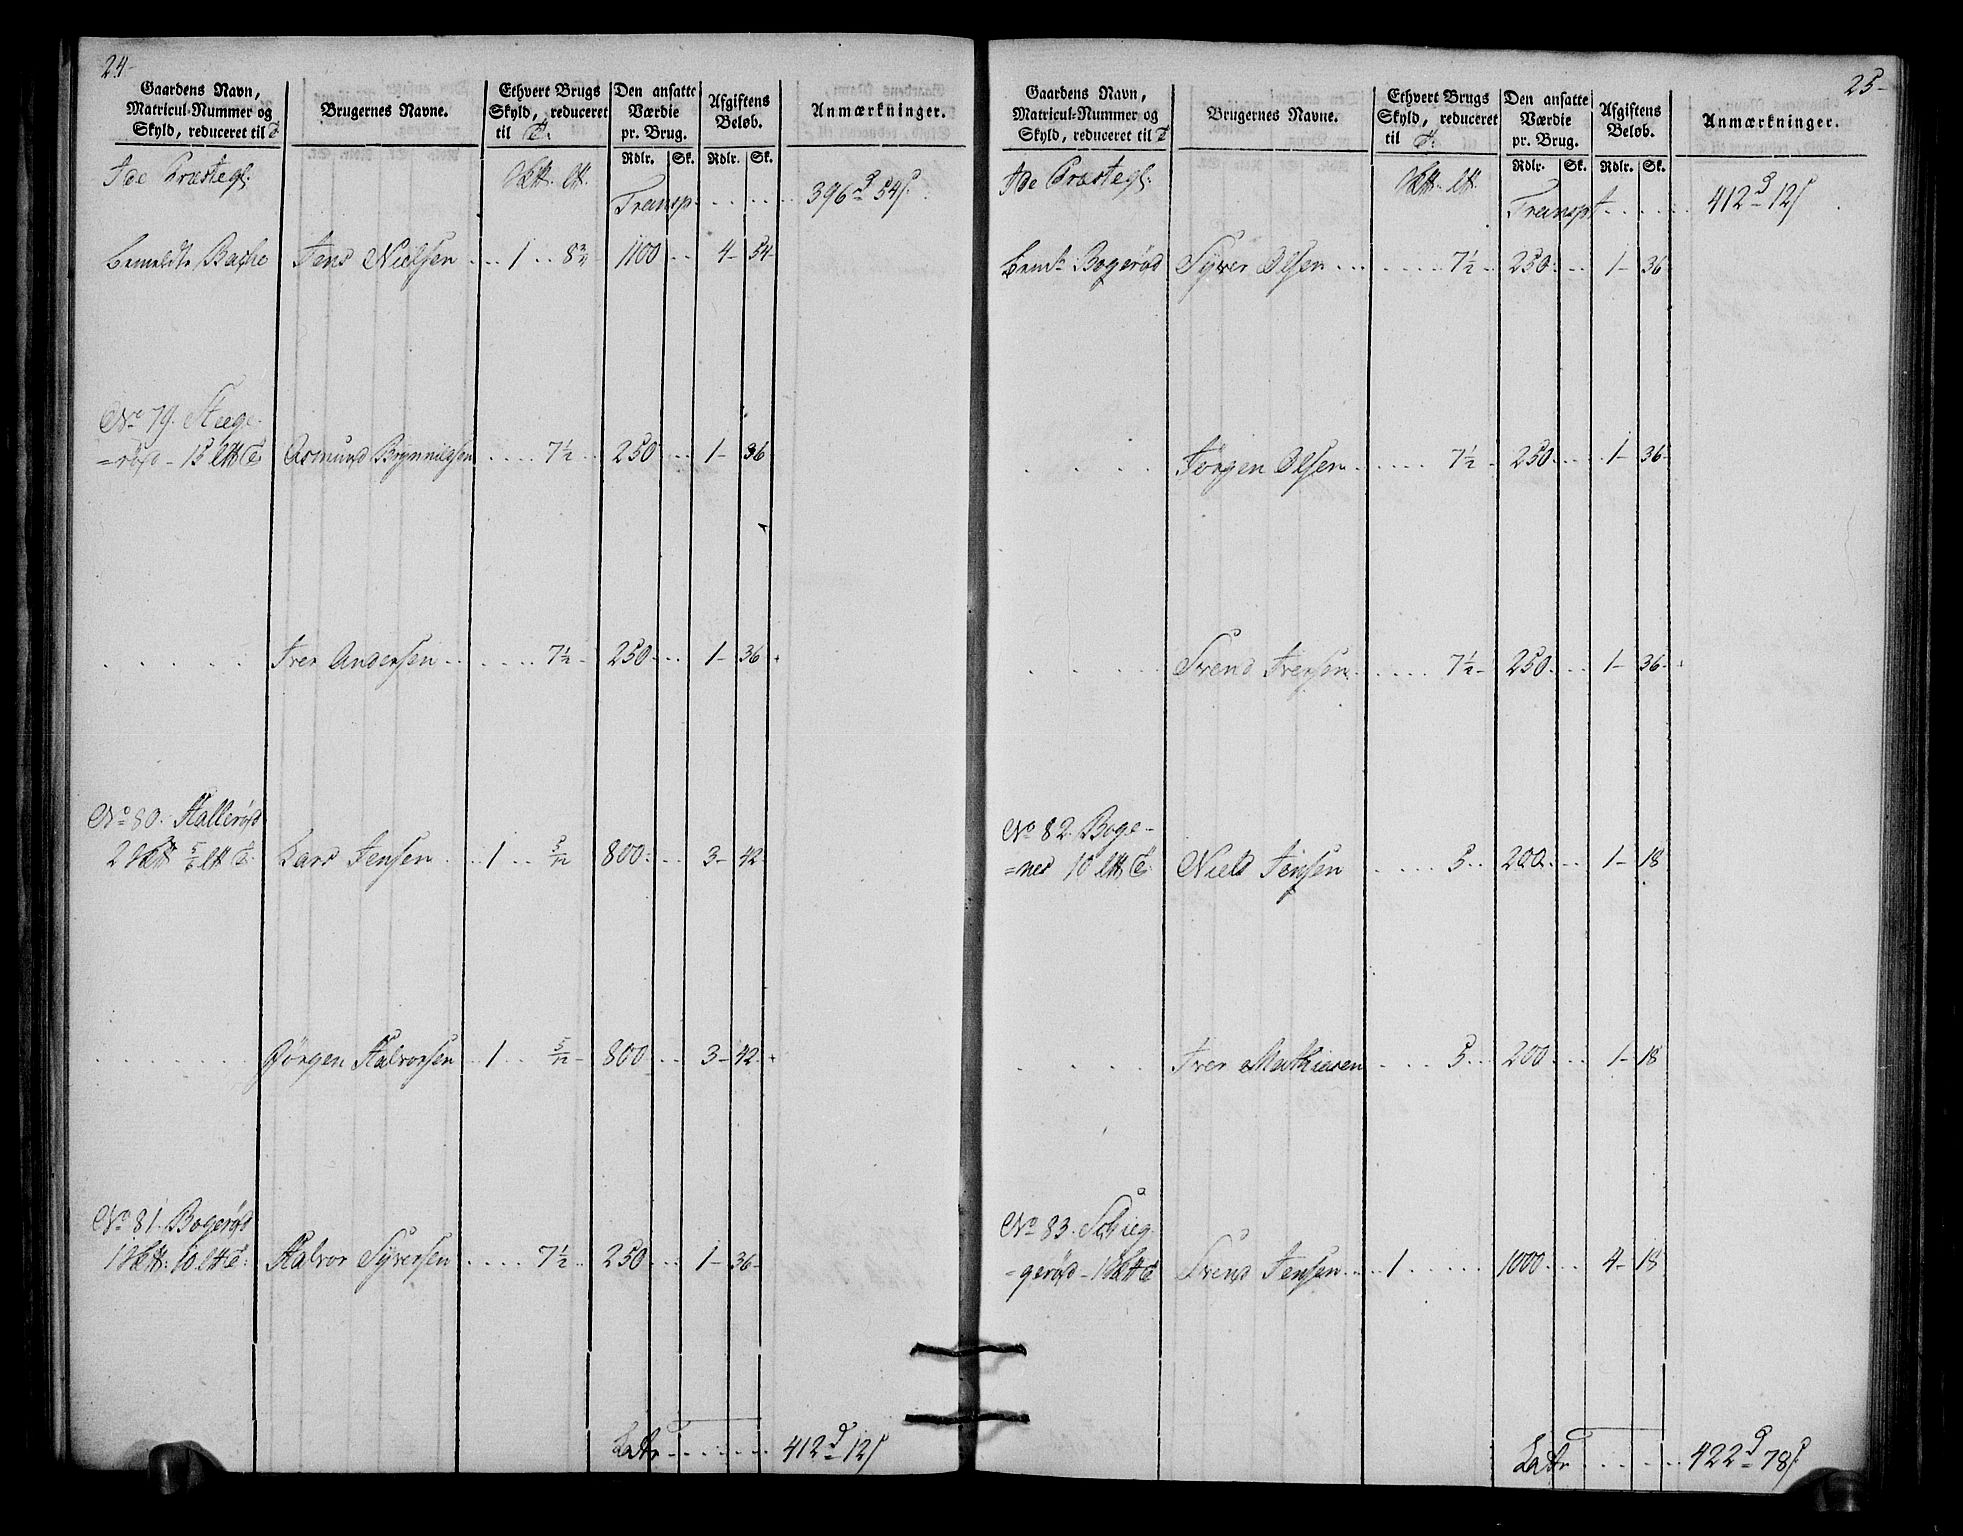 24-
Gaardens Navn, Matricul-Nummer og Skyld, reduceret til
Brugernes Navne.
Ethvert Brugs Skyld, reduceret til
Den ansatte Værdie pr. Brug.
Afgiftens Beløb.
Anmærkninger.
Rdlr. Sk. Rdlr. Sk.
Ide Præstegl:
Transp. . . . . . 396 54
bemeldte Bakke Jens Nielsen . . . 1 . . 8 3/4 1100 . . 4- 54-
No 79. Stege-
=rød - 15 Asmund Brynnilsen . . . . 7 1/2 . . 250 . . . 1- 36
. . . . . Iver Andersen . . . . . . 7 1/2 - 250 . . . 1- 36
No 80. Hallerød
2 5/6 Lars Jensen . . 1 . . 5/12 800 . . . 3- 42
. . . . . . . Jørgen Halvorsen . . 1 . . 5/12 - 800 . . . 3- 42
No 81. Bogerød
1 10 Halvor Syversen . . . . 7 1/2 . . 250 . . . 1- 36-
Latr . . . . . . 412 12
25-
Gaardens Navn, Matricul-Nummer og Skyld, reduceret til
Brugernes Navne.
Ethvert Brugs Skyld, reduceret til
Den ansatte Værdie pr. Brug.
Afgiftens Beløb.
Anmærkninger.
Rdlr. Sk. Rdlr. Sk.
Ide Præstegl:
Transpt . . . . . 412 12
bemte Bogerød Syver Olsen . . . . . . . 7 1/2 - 250 . . . 1- 36
. . . . Jörgen Olsen . . . . . 7 1/2 - 250 . . . . 1- 36-
. . . . Svend Iversen . . . . . 7 1/2 - 250 . . . 1- 36-
No 82. Boge-
=nes 10 Niels Jensen . . . . 5 . . 200 . . . 1- 18
. . . . Iver Mathiesen . . . . 5 . . 200 . . . 1- 18
No 83.
=gerød - 1 Svend Jensen . . . . 1 . . . . 1000 . . . 4- 18
Latr . . . . . 422 78